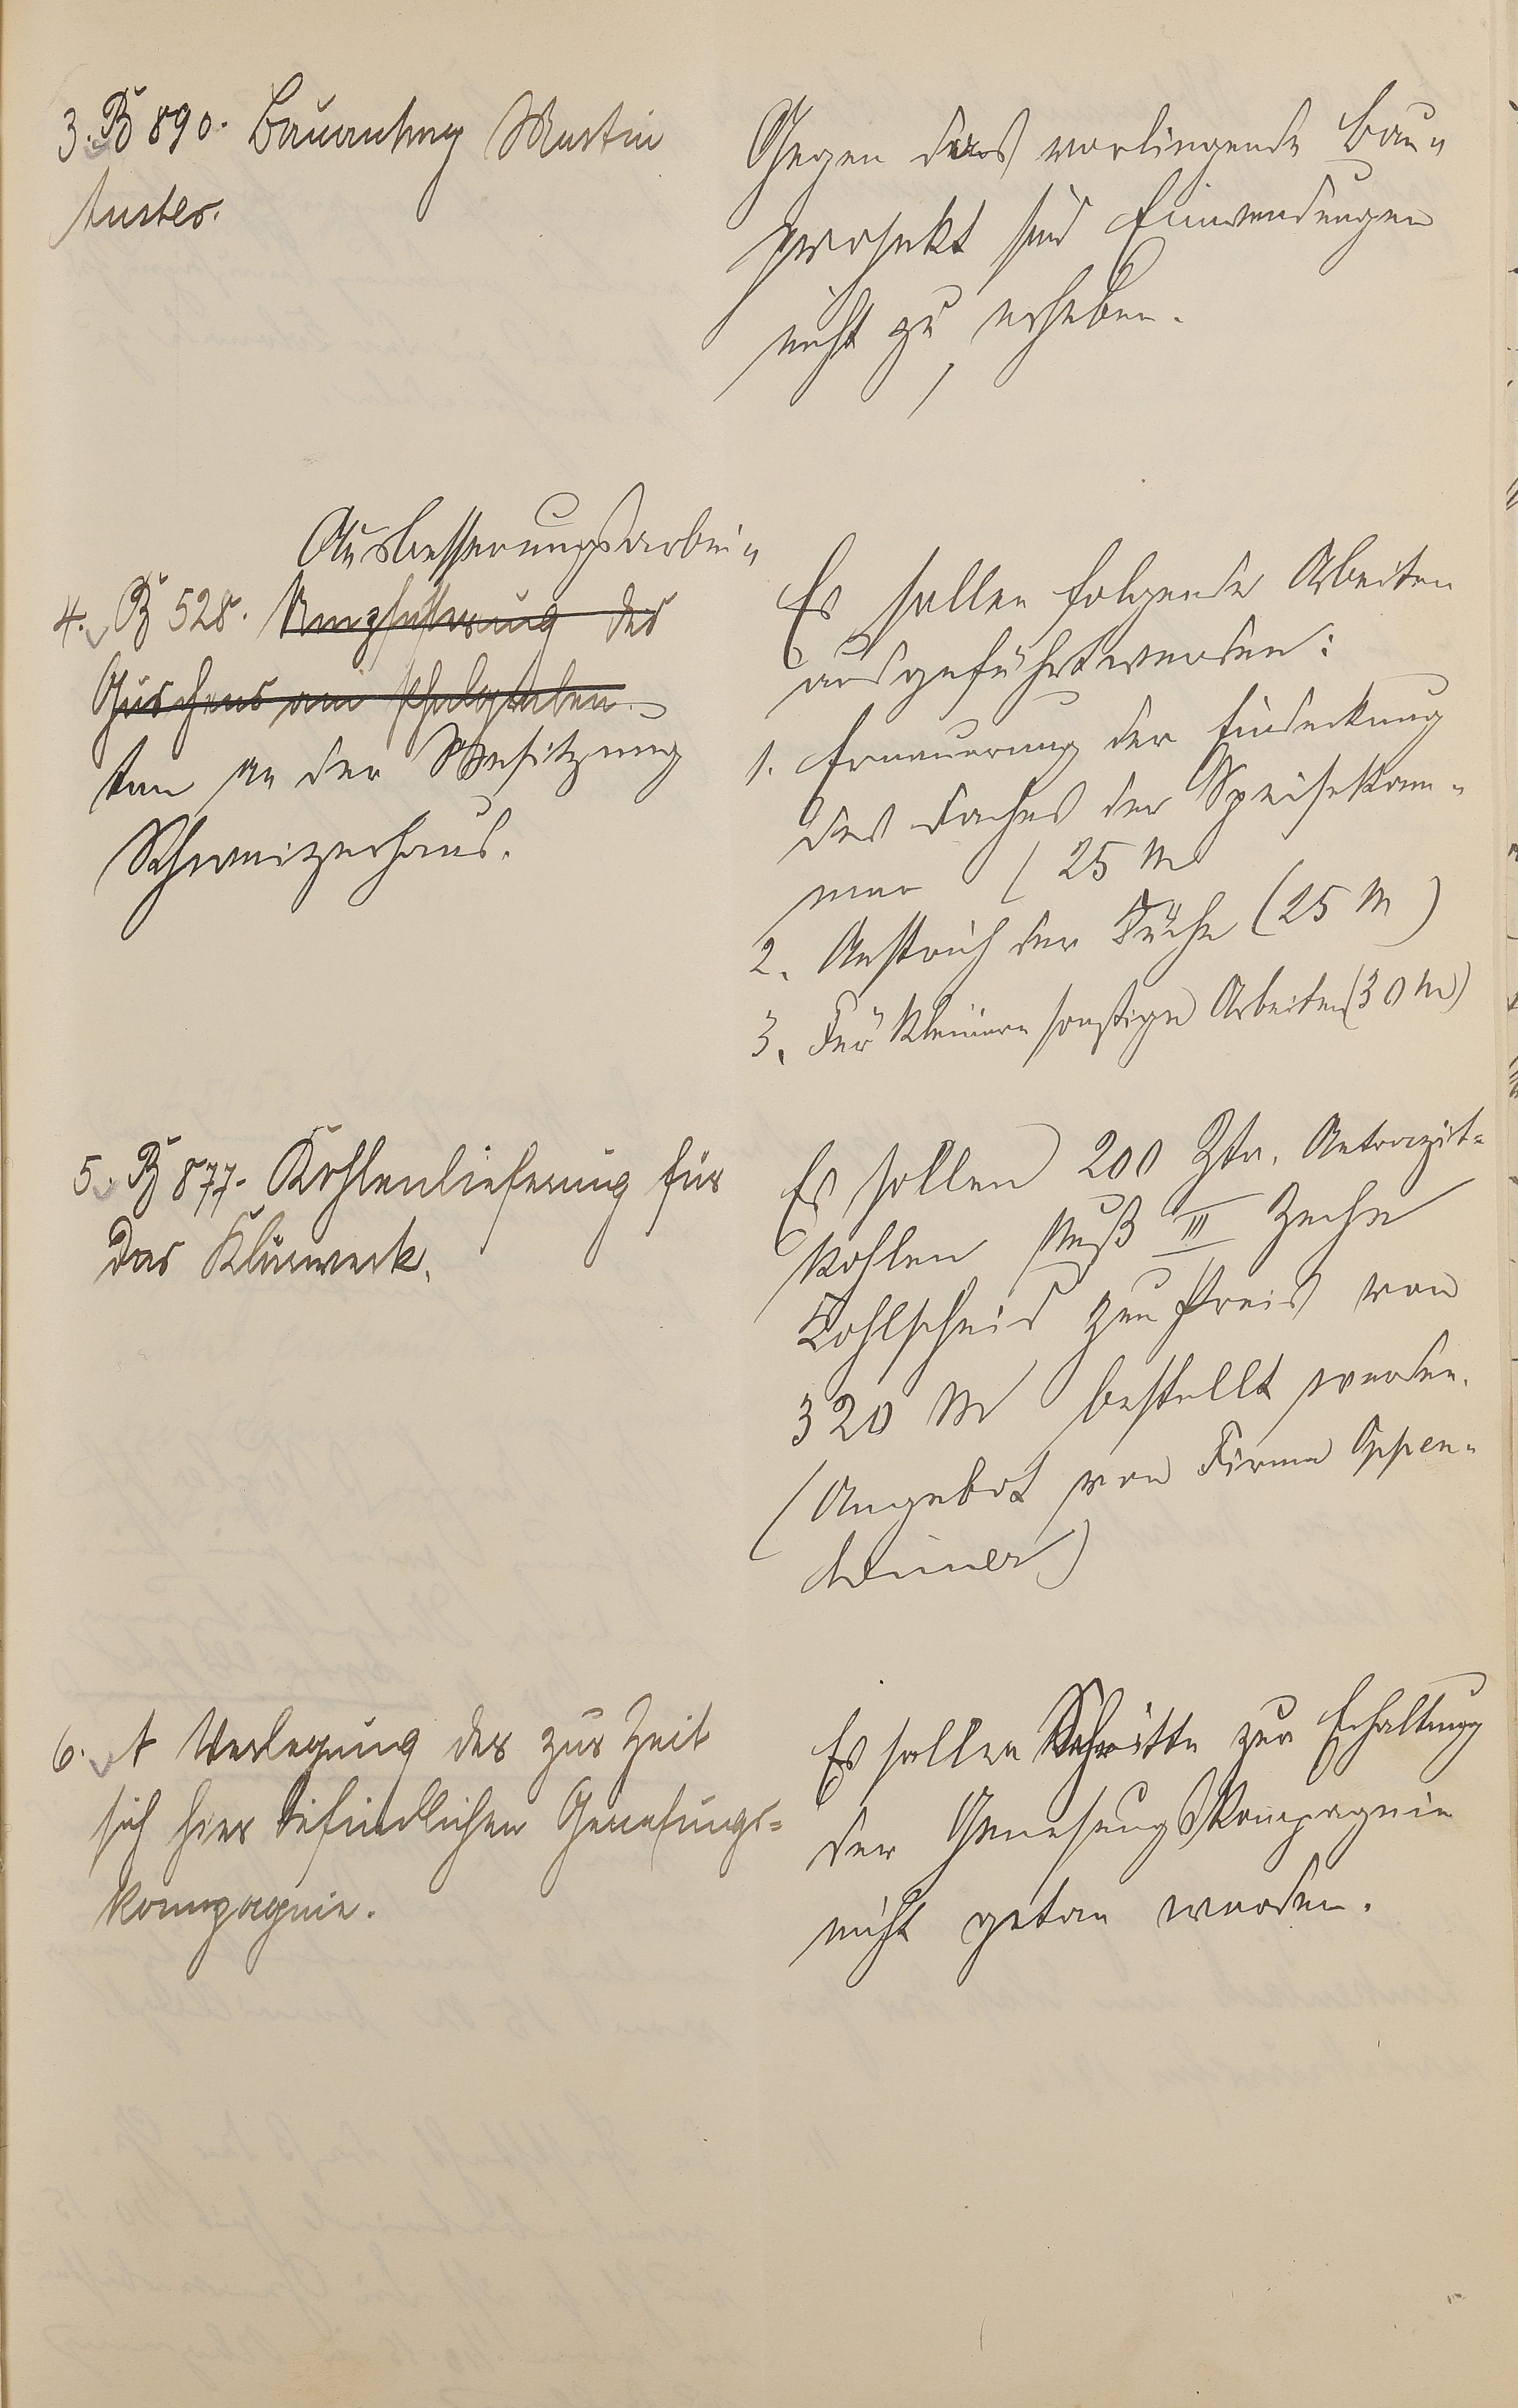 3. B 890. Bauantrag Martin
Kuster.
Gegen das vorliegende Bau-
projekt sind Einwendungen
nicht zu erheben.
Ausbesserungsarbei-
4. B 528. des
am Schulgraben
ten an der Besitzung
Schweizerhaus.
Es sollen folgende Arbeiten
ausgeführt werden:
1. Erneuerung der Eindeckung
des Daches der Speisekam-
mer (25 M
2. Anstrich der Küche (25 M)
3. Für kleinere sonstige Arbeiten (30 M)
5. B 877. Kohlenlieferung für
das Klärwerk.
Es sollen 200 Ztr. Antrazit-
kohlen Nuß III Zeche
Kohlscheid zum Preis von
320 M bestellt werden.
(Angebot von Firma Oppen-
heimer)
6. A Verlegung der zur Zeit
sich hier befindlichen Genesungs-
kompagnie.
Es sollen Schritte zur Erhaltung
der Genesungskompagnie
nicht getan werden.